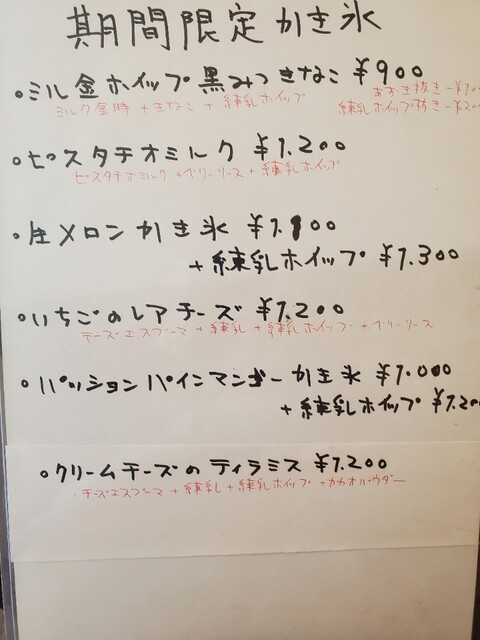 期間限定かき氷
・ミル金ホイップ黒みつきなこ ¥900
ミルク金時+きなこ+練乳ホイップ
あずき抜き-¥100
練乳ホイップ抜き-¥200
・ピスタチオミルク ¥1.200
ピスタチオミルク+ベリーソース+練乳ホイップ
・生メロンかき氷 ¥1.100
+練乳ホイップ ¥1.300
・いちごのレアチーズ ¥1.200
チーズエスプーマ+練乳+練乳ホイップ+ベリーソース
・パッションパインマンゴーかき氷 ¥1.000
+練乳ホイップ ¥1.200
・クリームチーズのティラミス ¥1.200
チーズエスプーマ+練乳+練乳ホイップ+カカオパウダー